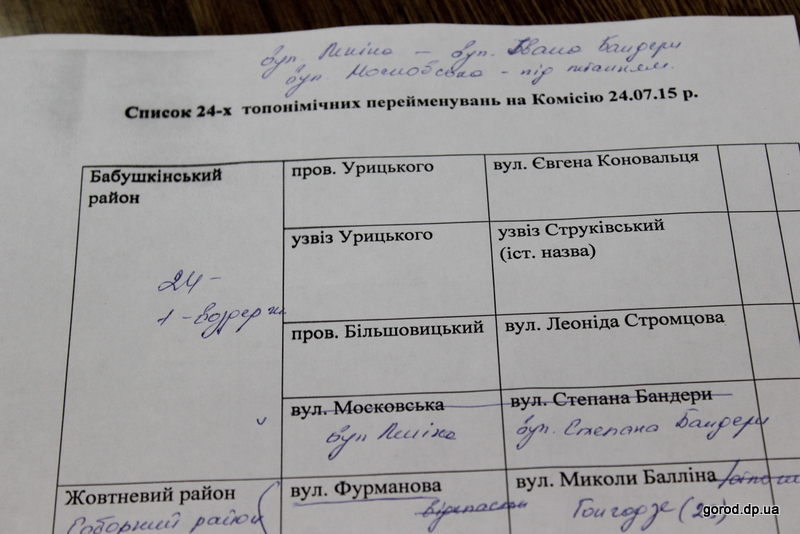 вул. Леніна – вул. Івана Бандери
вул. Московська – під питанням.
Список 24-х топонімічних перейменувань на Комісію 24.07.15 р.
Бабушкінський район
пров. Урицького
вул. Євгена Коновальця
узвіз Урицького
узвіз Струківський
(іст. назва)
24 –
1 –
пров. Більшовицький
вул. Леоніда Стромцова
вул. Московська
вул. Степана Бандери
вул Леніна
вул. Степана Бандери
Жовтневий район
вул. Фурманова
вул. Миколи Балліна
Соборний район
gorod.dp.ua